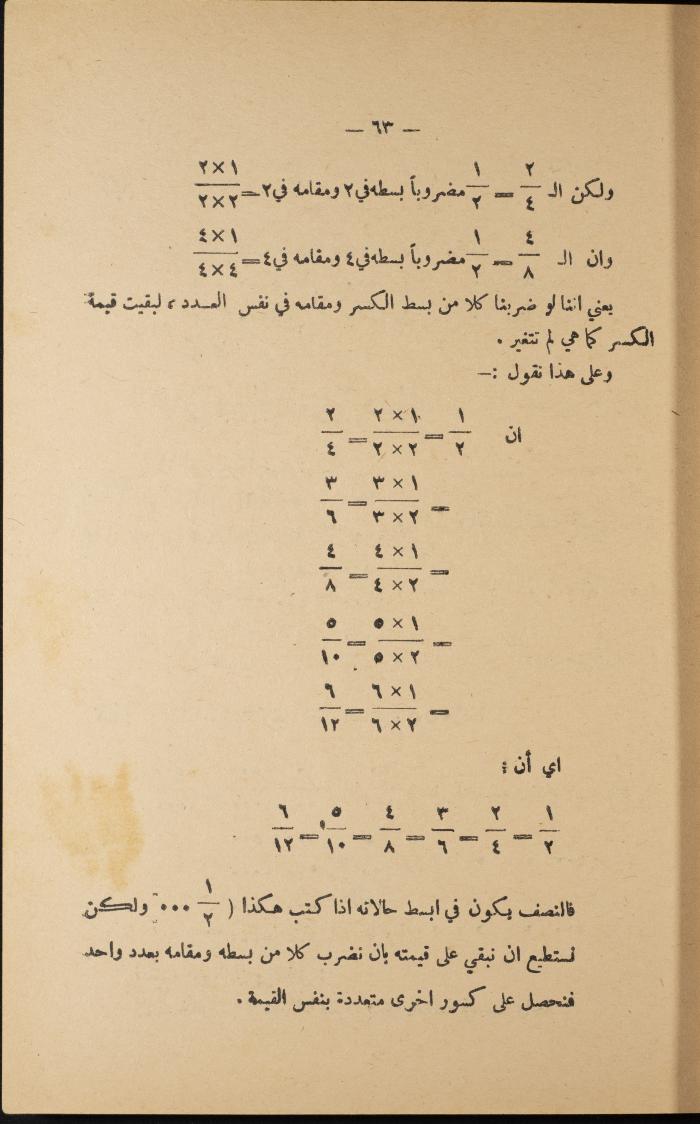 — ٦٣ —
ولكن الـ ٢/٤ = ١/٢ مضروباً بسطه في ٢ ومقامه في ٢ = ١×٢/٢×٢
وان الـ ٤/٨ = ١/٢ مضروباً بسطه في ٤ ومقامه في ٤ = ١×٤/٤×٤
يعني اننا لو ضربنا كلا من بسط الكسر ومقامه في نفس العدد ، لبقيت قيمة
الكسر كما هي لم تتغير .
وعلى هذا نقول :—
ان ١/٢ = ١×٢/٢×٢ = ٢/٤
= ١×٣/٢×٣ = ٣/٦
= ١×٤/٢×٤ = ٤/٨
= ١×٥/٢×٥ = ٥/١٠
= ١×٦/٢×٦ = ٦/١٢
اي أن :
١/٢ = ٢/٤ = ٣/٦ = ٤/٨ = ٥/١٠ = ٦/١٢
فالنصف يكون في ابسط حالاته اذا كتب هكذا ( ١/٢ ... ولكن
نستطيع ان نبقي على قيمته بان نضرب كلا من بسطه ومقامه بعدد واحد
فنحصل على كسور اخرى متعددة بنفس القيمة .